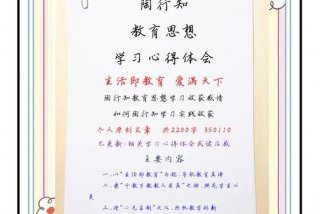 陶行知
教育思想
学习心得体会
生活即教育 爱满天下
陶行知教育思想学习收获感悟
如何陶行知学习实践收获
个人原创文章 共2200字 350110
已更新:相关学习心得体会或读后感
主要内容
一、以“生活即教育”为舵,导航教育真谛
二、秉“千教万教教人求真”之烛,照亮学生心
灵
三、借“小先生制”之